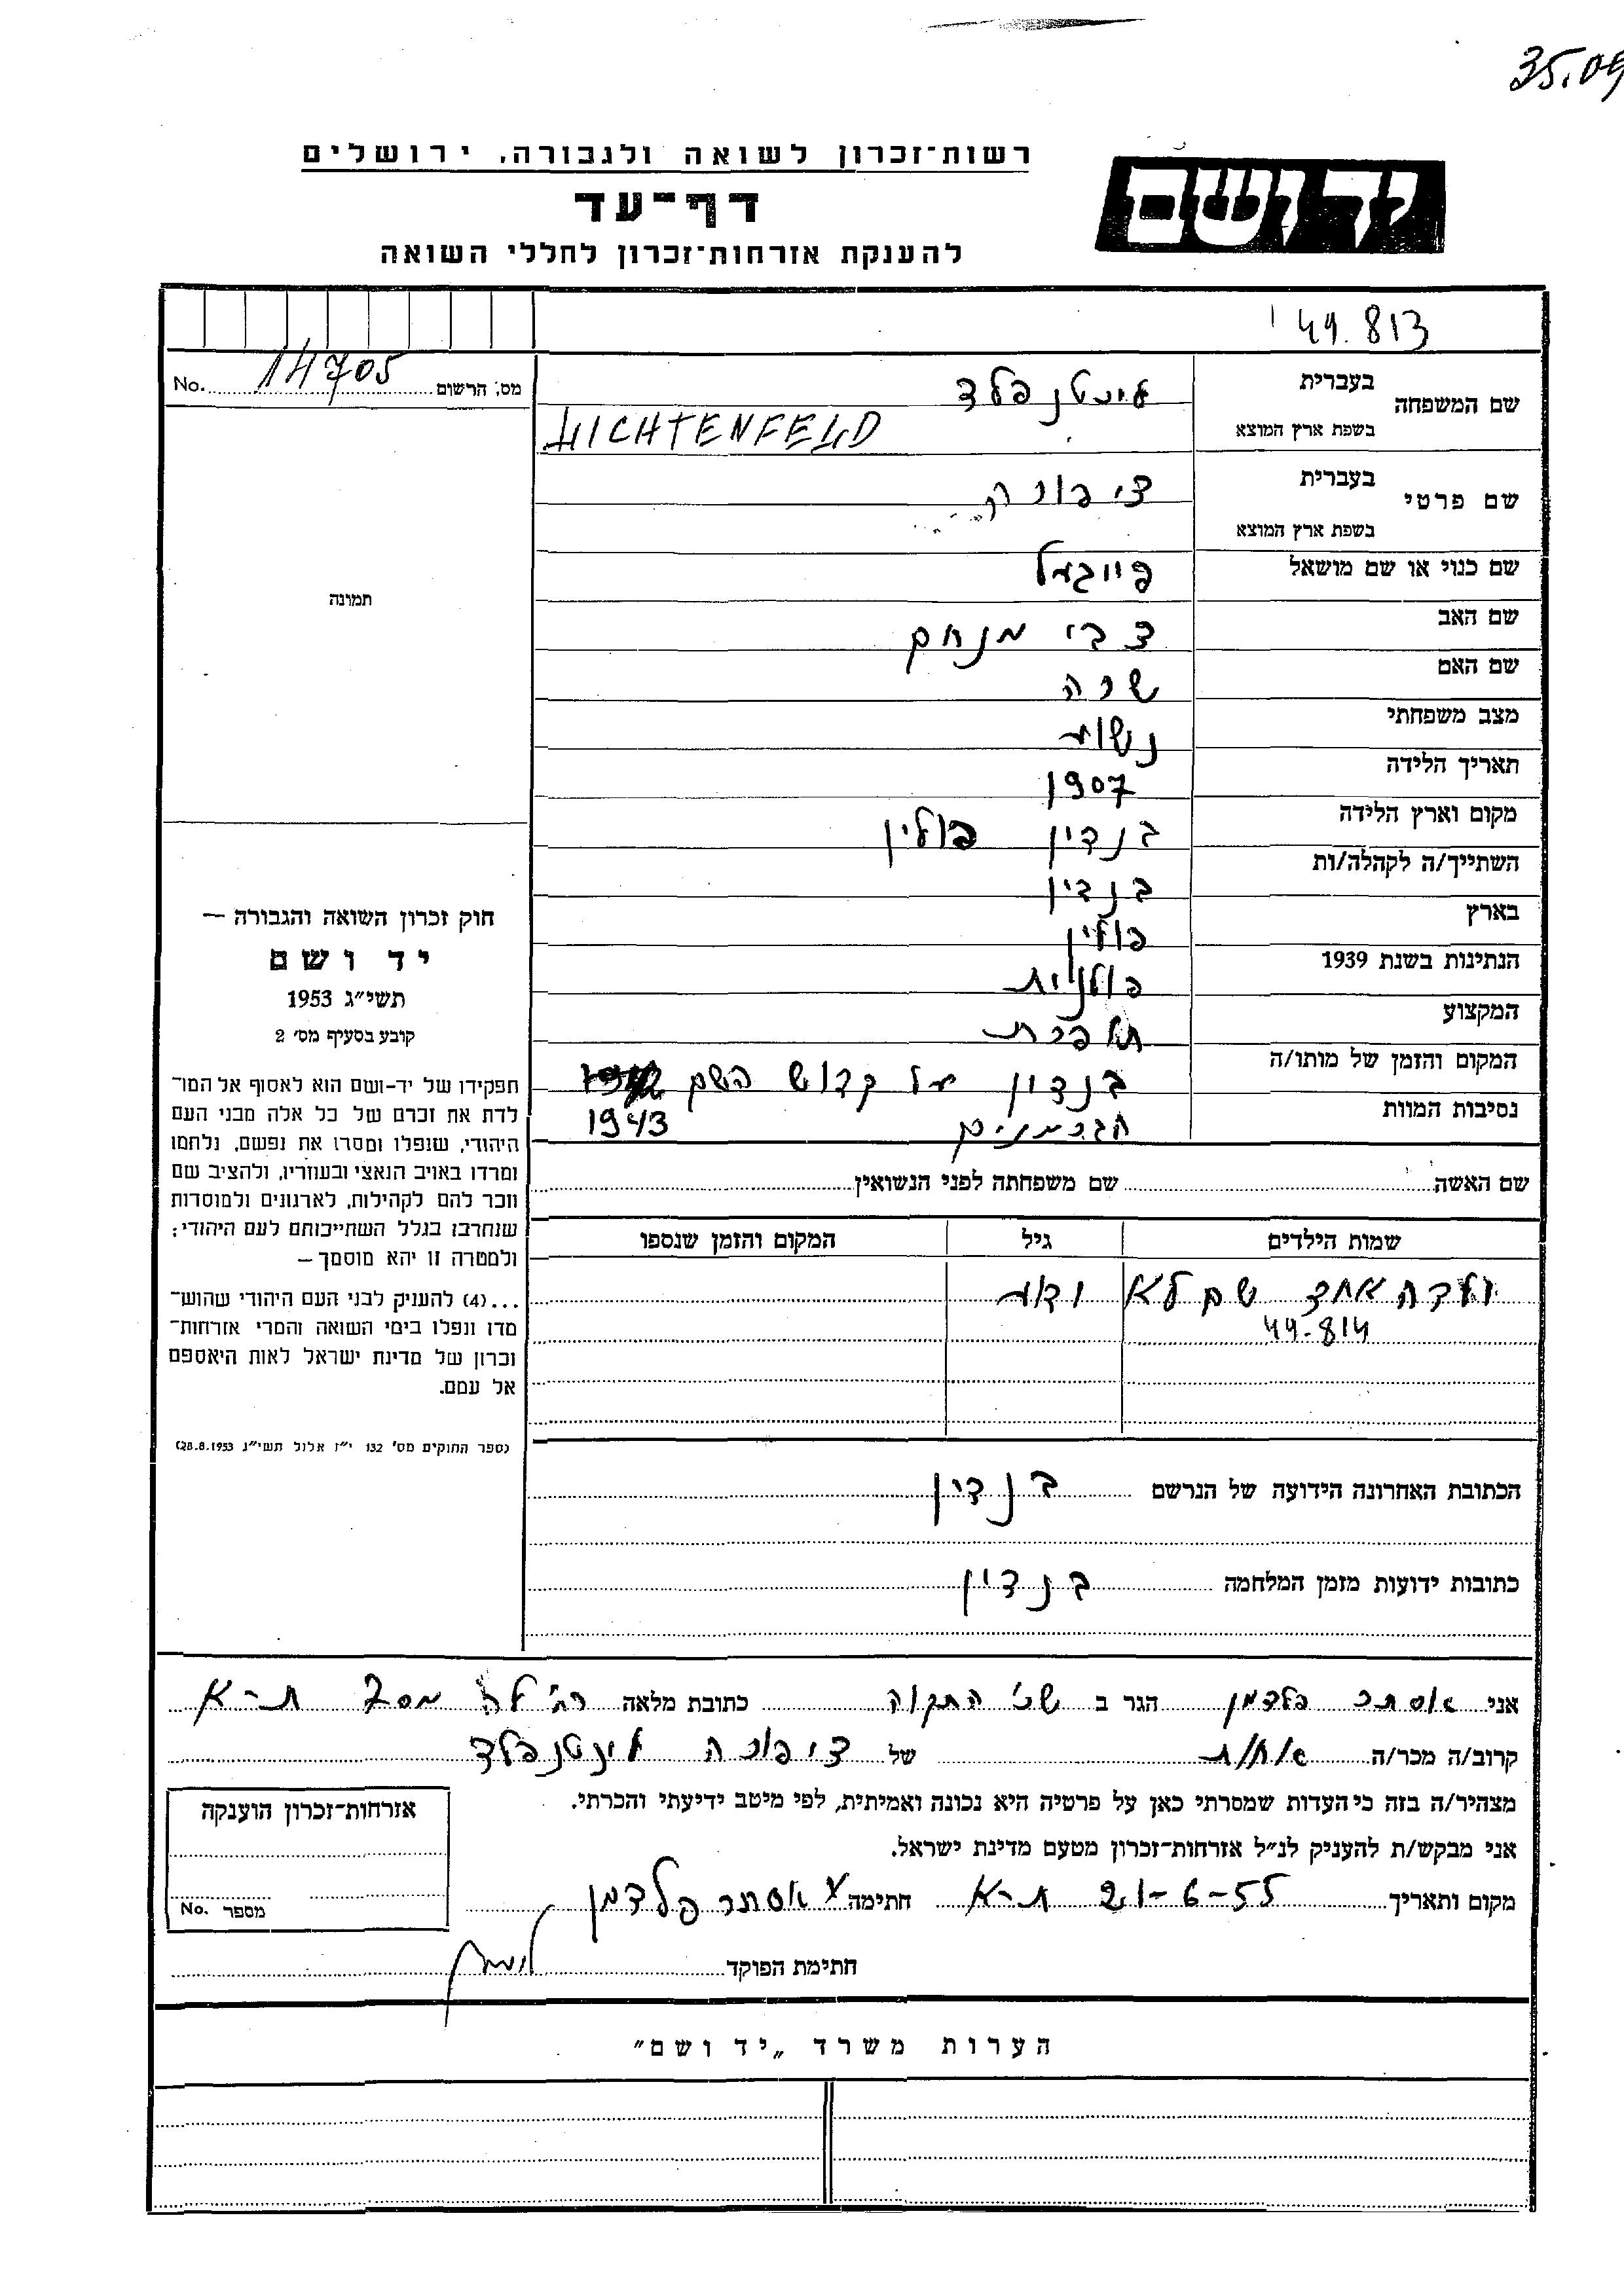 35.09
רשות־זכרון לשואה ולגבורה, ירושלים
יד ושם
דף־עד
להענקת אזרחות־זכרון לחללי השואה
49.813
No. 14705 מס. הרשום
שם המשפחה בעברית ליכטנפלד
בשפת ארץ המוצא LICHTENFELD
שם פרטי בעברית ציפורה
בשפת ארץ המוצא
שם כנוי או שם מושאל פייגעל
שם האב צבי מנחם
שם האם שרה
מצב משפחתי נשואה
תאריך הלידה 1907
מקום וארץ הלידה בנדין פולין
השתייך/ה לקהלה/ות בנדין
בארץ פולין
הנתינות בשנת 1939 פולנית
המקצוע תופרת
המקום והזמן של מותו/ה בנדין על קדוש השם
נסיבות המוות הגרמנים 1943
שם האשה שם משפחתה לפני הנשואין
שמות הילדים גיל המקום והזמן שנספו
ילדה אחד שם לא ידוע
49-814
הכתובת האחרונה הידועה של הנרשם בנדין
כתובות ידועות מזמן המלחמה בנדין
תמונה
חוק זכרון השואה והגבורה —
יד ושם
תשי״ג 1953
קובע בסעיף מס׳ 2
תפקידו של יד-ושם הוא לאסוף אל המו־
לדת את זכרם של כל אלה מבני העם
היהודי, שנפלו ומסרו את נפשם, נלחמו
ומרדו באויב הנאצי ובעוזריו, ולהציב שם
וזכר להם לקהילות, לארגונים ולמוסדות
שנחרבו בגלל השתייכותם לעם היהודי;
ולמטרה זו יהא מוסמך —
...(4) להעניק לבני העם היהודי שהוש־
מדו ונפלו בימי השואה והמרי אזרחות־
זכרון של מדינת ישראל לאות היאספם
אל עמם.
(ספר החוקים מס׳ 132 י״ז אלול תשי״ג 28.8.1953)
אני אסתר פלדמן הגר ב שכ׳ התקוה כתובת מלאה רח׳ לה מס 7 ת-א
קרוב/ה מכר/ה אחות של ציפורה ליכטנפלד
מצהיר/ה בזה כי העדות שמסרתי כאן על פרטיה היא נכונה ואמיתית, לפי מיטב ידיעתי והכרתי.
אני מבקש/ת להעניק לנ״ל אזרחות־זכרון מטעם מדינת ישראל.
מקום ותאריך 21-6-55 ת-א חתימה אסתר פלדמן
חתימת הפוקד
אזרחות־זכרון הוענקה
מספר No.
הערות משרד „יד ושם״